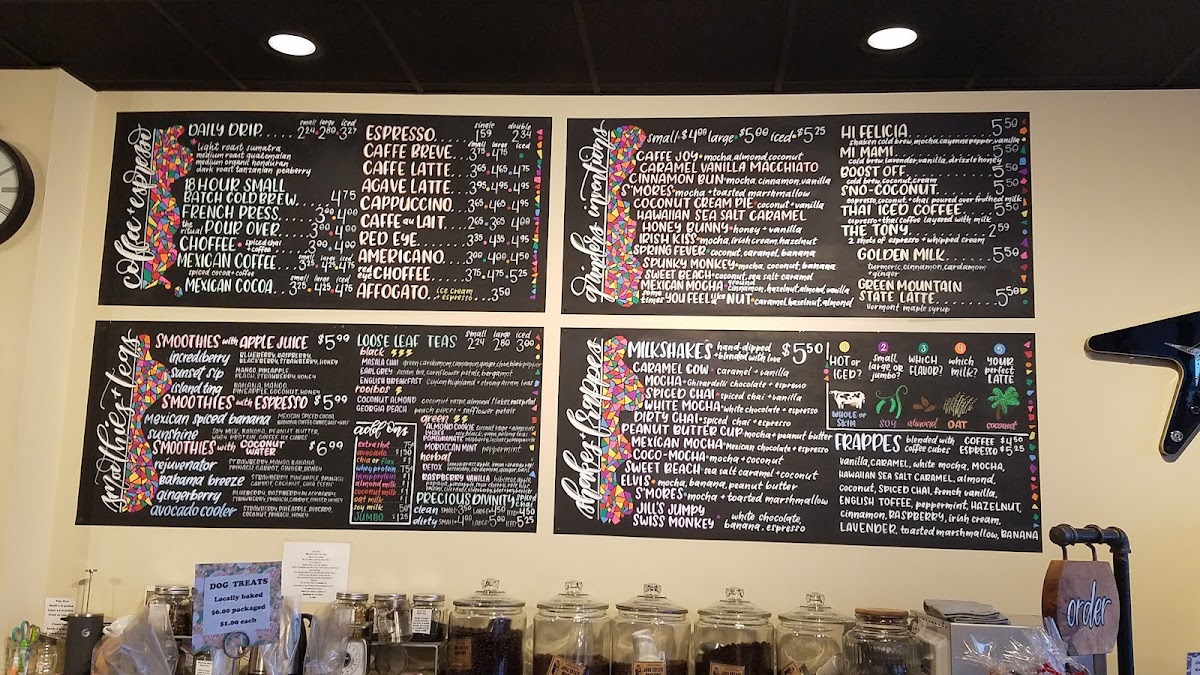 coffee + espresso
DAILY DRIP..... small 2.24 large 2.80 iced 3.27
light roast sumatra
medium roast guatemalan
medium organic honduras
dark roast tanzanian peaberry
18 HOUR SMALL
BATCH COLD BREW. 4.75
FRENCH PRESS... 3.00 4.00
the ritual POUR OVER... 3.00 4.00
CHOFFEE spiced chai + coffee 3.00 4.00
MEXICAN COFFEE... small large iced
spiced cocoa + coffee
MEXICAN COCOA... 3.25 4.25 4.75
single double
ESPRESSO........ 1.59 2.34
small large iced
CAFFE BREVE... 3.75 4.75
CAFFE LATTE... 3.65 4.65 4.75
AGAVE LATTE... 3.95 4.95 4.95
CAPPUCCINO... 3.65 4.65 4.95
CAFFE au LAIT.. 2.65 3.65 4.00
RED EYE....... 3.35 4.35 4.95
AMERICANO.... 3.00 4.00 4.50
red eye CHOFFEE... 3.75 4.75 5.25
AFFOGATO. ice cream + espresso... 3.50
grinders inventions
small $4.00 large $5.00 iced $5.25
CAFFE JOY mocha, almond, coconut
CARAMEL VANILLA MACCHIATO
CINNAMON BUN mocha, cinnamon, vanilla
S'MORES mocha + toasted marshmallow
COCONUT CREAM PIE coconut + vanilla
HAWAIIAN SEA SALT CARAMEL
HONEY BUNNY honey + vanilla
IRISH KISS mocha, irish cream, hazelnut
SPRING FEVER coconut, caramel, banana
SPUNKY MONKEY mocha, coconut, banana
SWEET BEACH coconut, sea salt caramel
MEXICAN MOCHA ground cinnamon, hazelnut, almond, vanilla
some times YOU FEEL like a NUT caramel, hazelnut, almond
HI FELICIA......... 5.50
shaken cold brew, mocha, cayenne pepper, vanilla
MI MAMI......... 5.50
cold brew, lavender, vanilla, drizzle honey
BOOST OFF......... 5.50
cold brew, coconut, cream
S'NO-COCONUT........ 5.50
espresso, coconut, + chai poured over frothed milk
THAI ICED COFFEE..... 5.50
espresso + thai coffee layered with milk
THE TONY......... 2.59
2 shots of espresso + whipped cream
GOLDEN MILK........ 5.50
turmeric, cinnamon, cardamom + ginger
GREEN MOUNTAIN
STATE LATTE........ 5.50
vermont maple syrup
smoothies + teas
SMOOTHIES with APPLE JUICE $5.99
incrediberry BLUEBERRY, RASPBERRY, BLACKBERRY, STRAWBERRY, HONEY
sunset sip MANGO, PINEAPPLE, PEACH, STRAWBERRY, HONEY
island ting BANANA, MANGO, PINEAPPLE, COCONUT, HONEY
SMOOTHIES with ESPRESSO $5.99
mexican spiced banana
sunshine SOY MILK, BANANA, PEANUT BUTTER,
WHEY PROTEIN, COFFEE ICE CUBES
SMOOTHIES with COCONUT WATER $6.99
rejuvenator STRAWBERRY, MANGO, BANANA, SPINACH, CARROT, GINGER, HONEY
Bahama breeze
gingerberry
avocado cooler STRAWBERRY, PINEAPPLE, AVOCADO, COCONUT, SPINACH, HONEY
LOOSE LEAF TEAS small 2.24 large 2.80 iced 3.00
black
MASALA CHAI
EARL GREY
ENGLISH BREAKFAST Ceylon highland + strong assam teas
rooibos
COCONUT ALMOND
GEORGIA PEACH peach pieces + safflower petals
green
ALMOND COOKIE
LYCHEE
POMEGRANATE
MOROCCAN MINT peppermint
herbal
DETOX
RASPBERRY VANILLA
PRECIOUS DIVINITY spiced chai
clean SMALL 3.50 LARGE 4.50 ICED 4.50
dirty SMALL 4.00 LARGE 5.00 ICED 5.25
add ons
extra shot
avocado
chia or flax
whey protein
hemp protein
almond milk
coconut milk
oat milk
soy milk
JUMBO $1.25
shakes + frappes
MILKSHAKES hand-dipped + blended with love $5.50
CARAMEL COW caramel + vanilla
MOCHA Ghirardelli chocolate + espresso
SPICED CHAI spiced chai + vanilla
WHITE MOCHA white chocolate + espresso
DIRTY CHAI spiced chai + espresso
PEANUT BUTTER CUP mocha + peanut butter
MEXICAN MOCHA mexican chocolate + espresso
COCO-MOCHA mocha + coconut
SWEET BEACH sea salt caramel + coconut
ELVIS mocha, banana, peanut butter
S'MORES mocha + toasted marshmallow
JILL'S JUMPY
SWISS MONKEY white chocolate, banana, espresso
1 HOT or ICED?
2 small large or jumbo?
3 WHICH FLAVOR?
4 which milk?
5 YOUR perfect LATTE
WHOLE or SKIM
SOY
almond
OAT
coconut
FRAPPES blended with coffee cubes COFFEE $4.50 ESPRESSO $5.25
vanilla, CARAMEL, white mocha, MOCHA,
HAWAIIAN SEA SALT CARAMEL, almond,
coconut, SPICED CHAI, french vanilla,
ENGLISH TOFFEE, peppermint, HAZELNUT,
cinnamon, RASPBERRY, irish cream,
LAVENDER, toasted marshmallow, BANANA
DOG TREATS
Locally baked
$6.00 packaged
$1.00 each
order